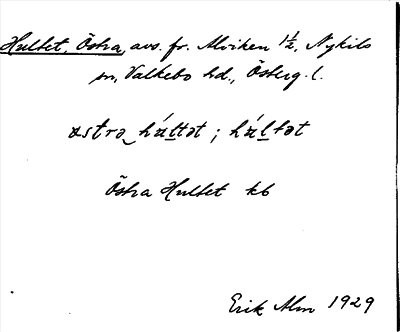 Hultet, Östra, avs. fr. Alviken 1½, Nykils
sn, Valkebo hd., Österg. l.
østrə húltət ; húltət
Östra Hultet kb
Erik Alm 1929